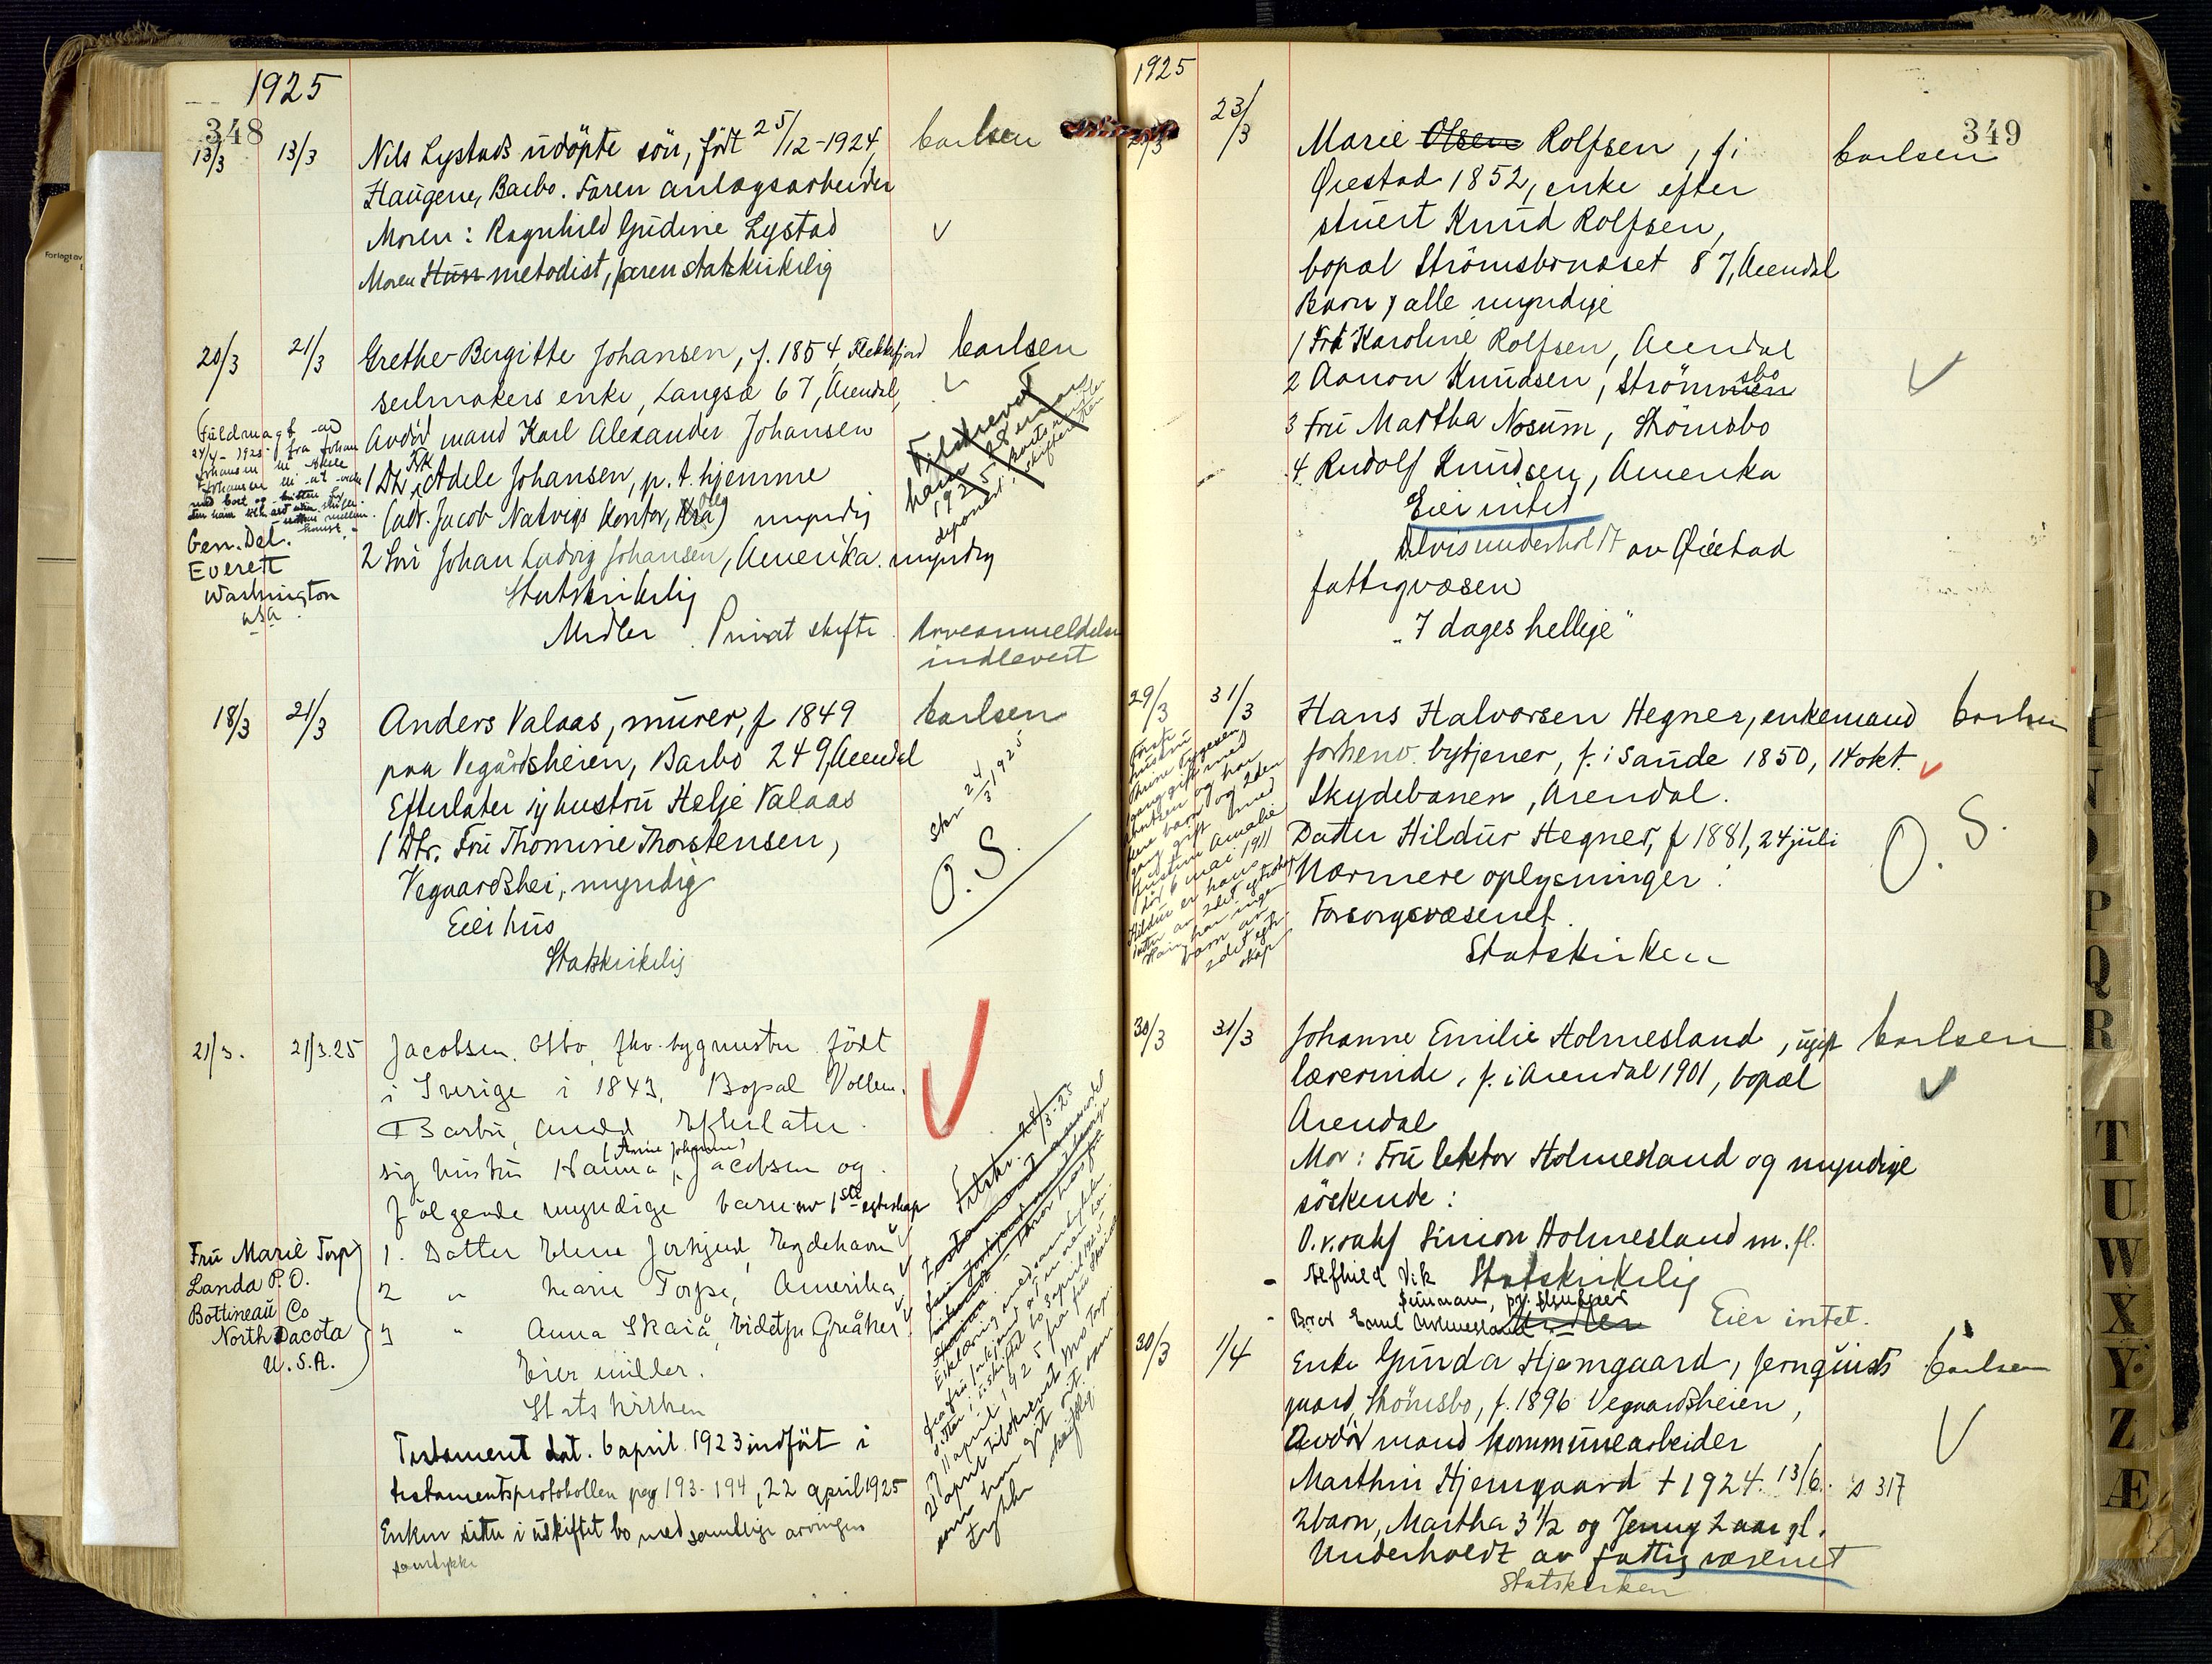 1925
348
13/3 13/3 Nils Lystads udöpte sön, født 25/12-1924, Carlsen
Haugene, Barbo. Faren anlægsarbeider
Moren: Ragnhild Gudine Lystad
Moren Hun metodist, faren statskirkelig
20/3 21/3 Grethe Bergitte Johansen, f. 1854, Flekkefjord Carlsen
seilmakers enke, Langsæ 67, Arendal,
Avdöd mand Karl Alexander Johansen
1 Dtr. Frk Adele Johansen, p.t. hjemme
(adr. Jacob Natvigs Kontor, Kra) Oslo myndig
2 Sön Johan Ludvig Johansen, Amerika. myndig
Statskirkelig
Midler. Privat skifte Arveanmeldelse
indlevert
Fuldmagt
Gen. Del.
Everett
Washington
usa.
Tilskrevet
ham 28 mars
1925
deponert
18/3 21/3 Anders Valaas, murer, f 1849 Carlsen
paa Vegårdsheien, Barbo 249, Arendal
Efterlater sig hustru Helje Valaas
1 Dtr. Fru Thomine Thorstensen,
Vegaardshei, myndig
Eier hus
Statskirkelig
Skr 24/3 1925
O. S.
21/3. 21/3.25 Jacobsen, Otto, fhv. bygmester født
i Sverige i 1843, Bopæl Vollene.
Barbu, Arendal Efterlater
sig hustru Hanna (Anne Johanne) Jacobsen og
følgende myndige barn av 1ste egteskap
1. Datter Elene Jorkjend, Eydehavn
2 " Marie Torp, Amerika
3 " Anna Skaiå, Eidet pr Greåker
Eier midler.
Statskirken
Testament dat. 6 april 1923 indført i
testamentsprotokollen pag 193-194, 22 april 1925
Enken sitter i uskiftet bo med samtlige arvingers
samtykke
Fru Marie Torp
Landa P.O.
Bottineau Co
North Dacota
U.S.A.
Tilskr. 28/3-25
11 april 1925 fra fru Skaiaa
21 april tilskrevet Mrs Torp.
1925
349
23/3 Marie Olsen Rolfsen, f i Carlsen
Øiestad 1852, enke efter
stuert Knud Rolfsen,
bopæl Strömsbonæset 87, Arendal
Barn, alle myndige
1 Frk Karoline Rolfsen, Arendal
2 Aanon Knudsen, Strömmen sbo
3 Fru Martha Nosum, Strömsbo
4 Rudolf Knudsen, Amerika
Eier intet
Delvis underholdt av Øiestad
fattigvæsen
"7 dages hellige"
29/3 31/3 Hans Halvorsen Hegner, enkemand Carlsen
forhenv. bytjener, f. i Saude 1850, 14 okt.
Skydebanen, Arendal.
Datter Hildur Hegner, f 1881, 24 juli
Nærmere oplysninger:
Forsorgsvæsenet.
Statskirken
O. S.
Første
hustru
gang gift med
flere barn og 2den
gang gift med
hustru Amalie
död 6 mai 1911
Hildur er hans
datter av 2det egteskap
Han har ingen
barn av
2det egte-
skap
30/3 31/3 Johanne Emilie Holmesland, ugift Carlsen
lærerinde, f. i Arendal 1901, bopæl
Arendal
Mor: Fru lektor Holmesland og myndige
söskende:
O.r.sakf. Simon Holmesland m. fl.
- Alfhild Vik Statskirkelig
- Bror Emil Holmesland Eier intet.
30/3 1/4 Enke Gunda Hjemgaard, Jernquists Carlsen
gaard, Strömsbo, f. 1896 Vegaardsheien,
Avdöd mand kommunearbeider
Marthin Hjemgaard † 1924. 13/6. s 317
2 barn, Martha 3 1/2 og Jenny 2 aar gl.
Underholdt av fattigvæsenet
Statskirken
N
O
P
Q
R
T
U
W
X
Y
Z
Æ